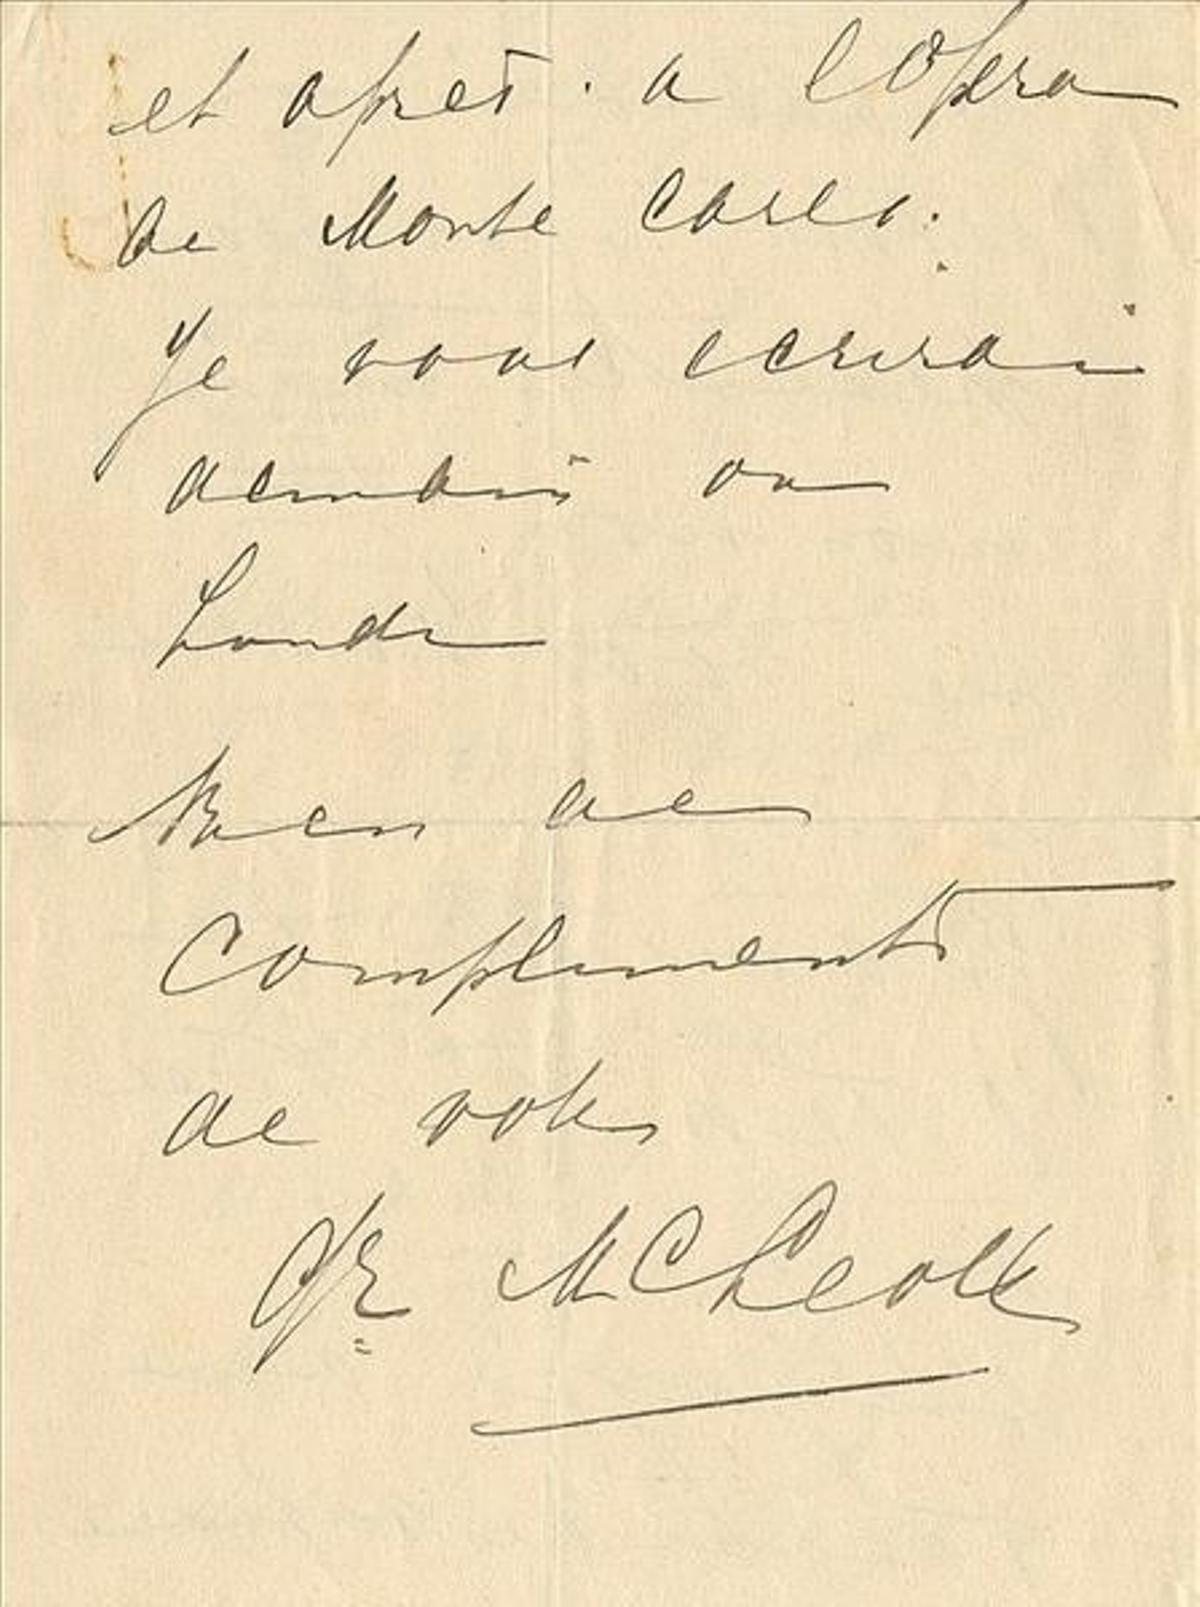 et après. a l'opera
de Monte Carlo.
Je vous ecrirai
demain ou
Lundi
Bien de
Compliments
de votre
Mc Leod